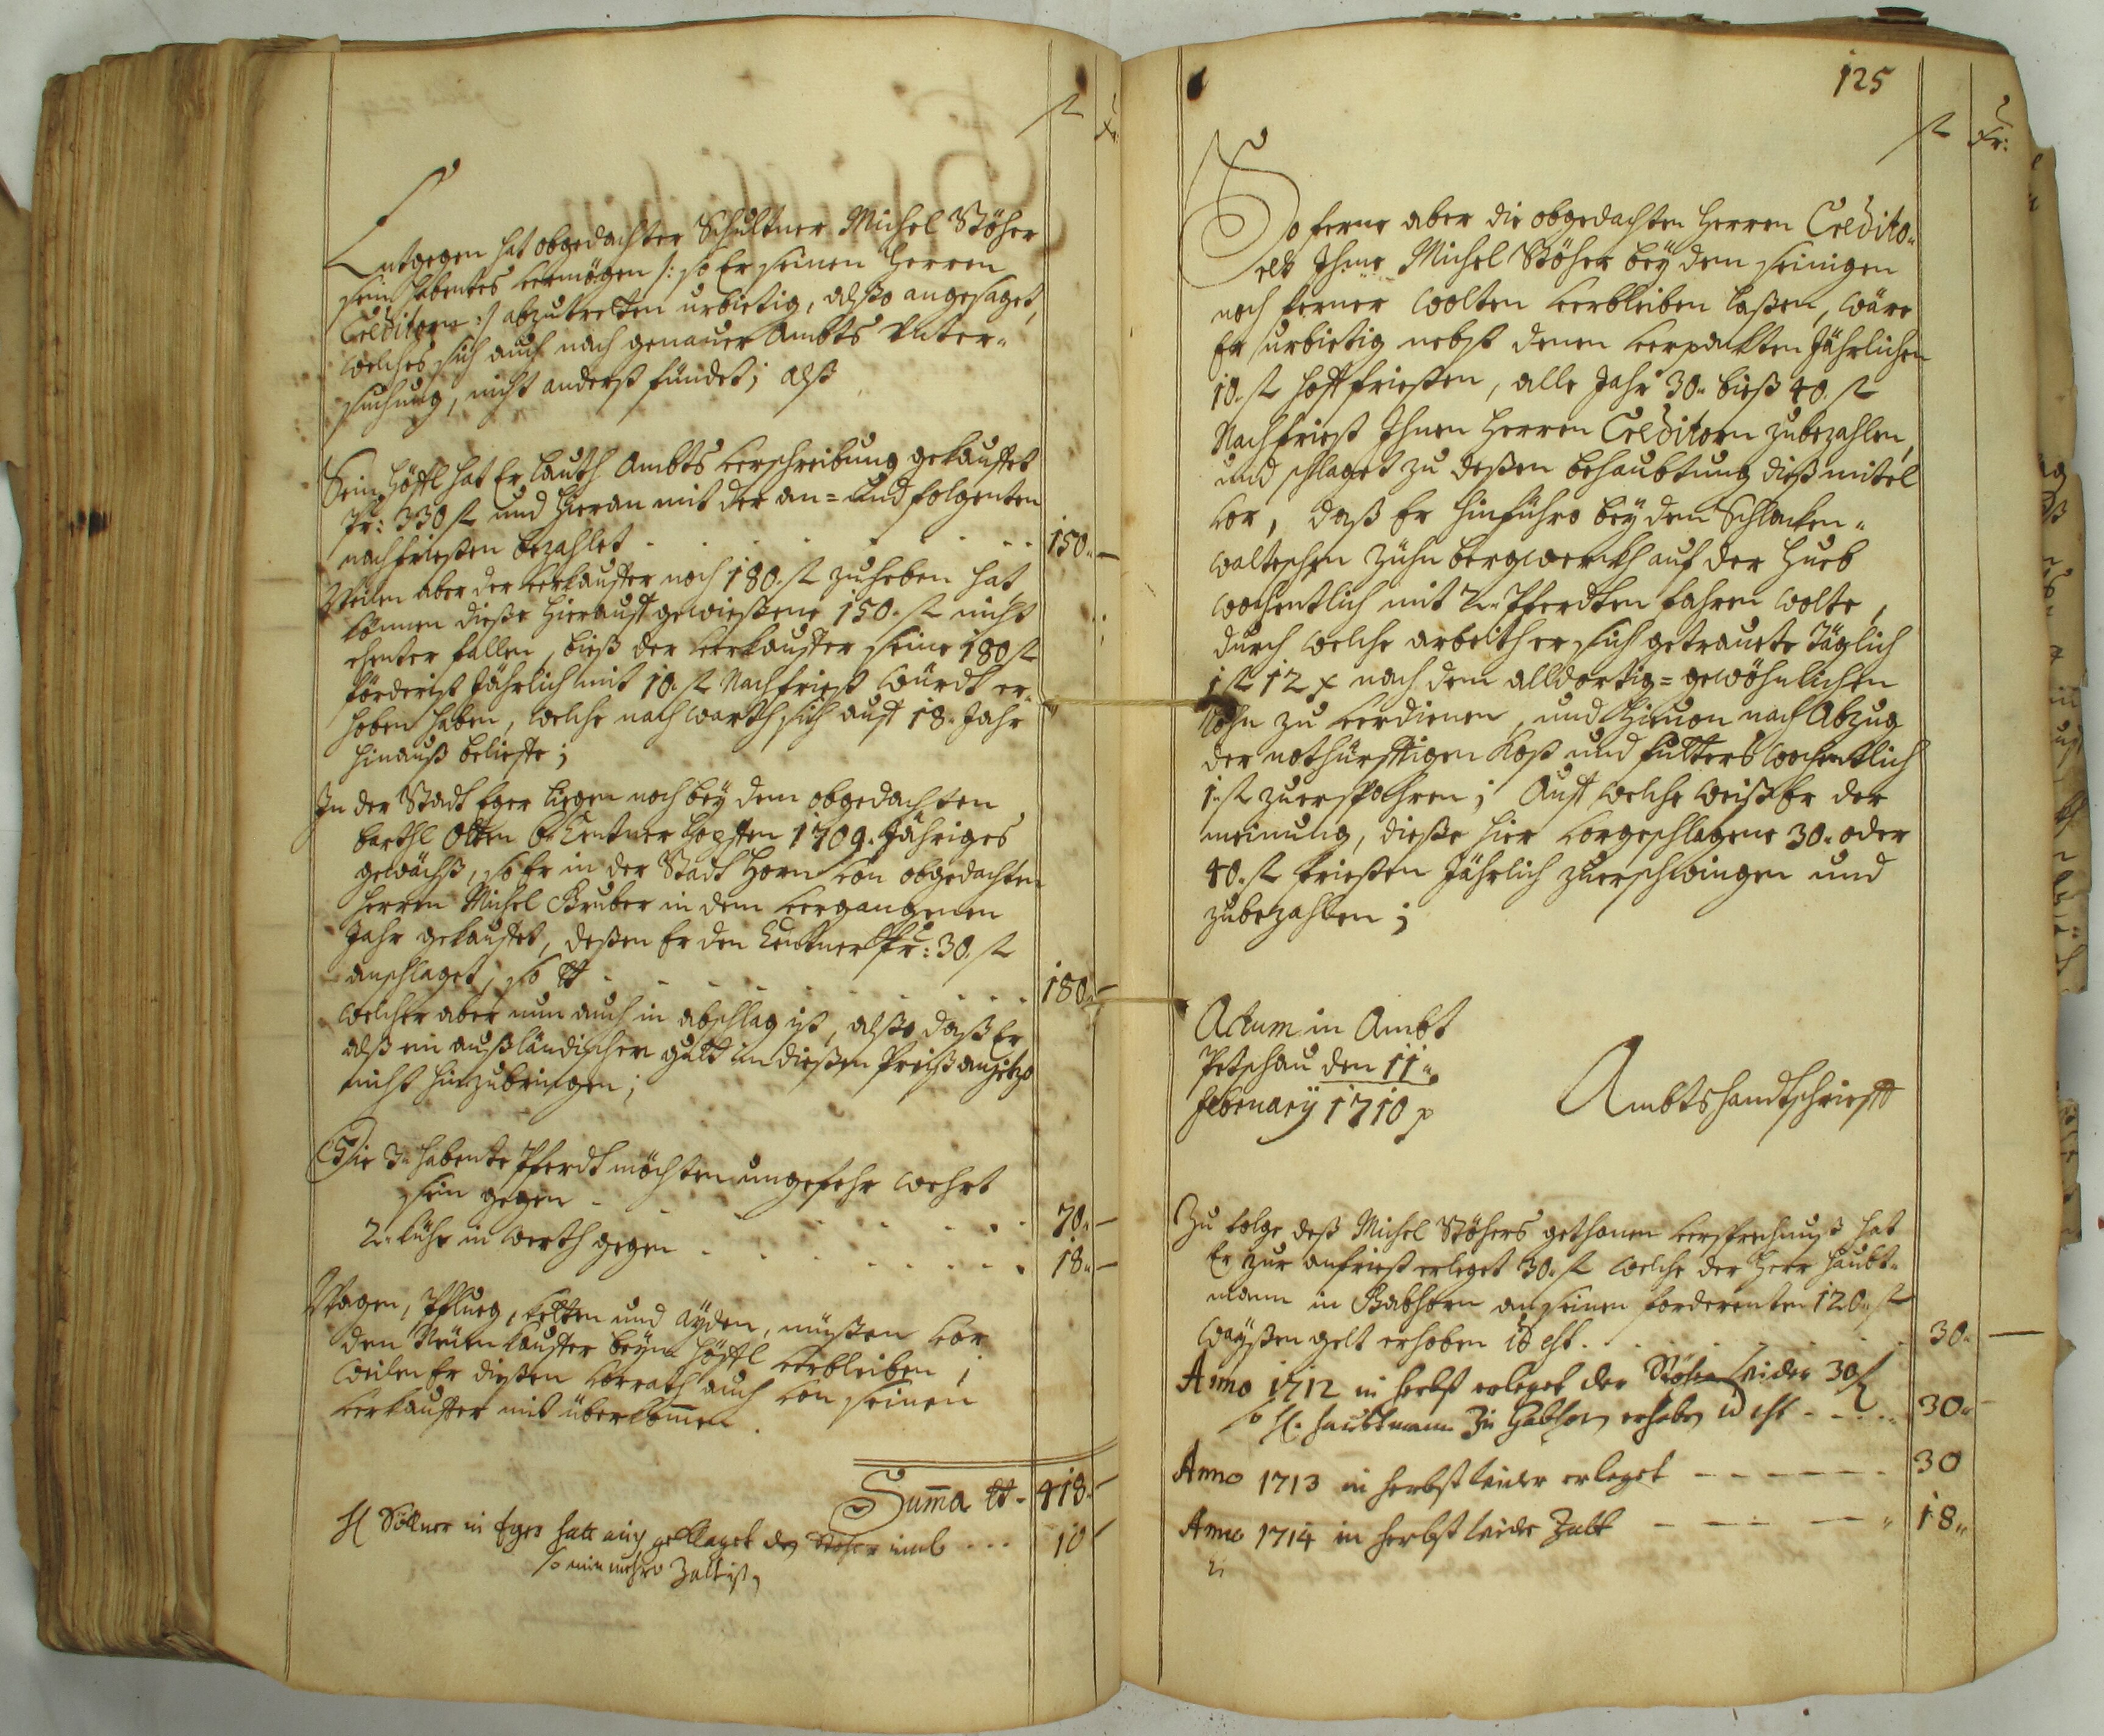 fl kr:
Entgegen hat obgedachter Schultner Michel Stöher
sein habentes vermögen /: so Er seinen Herren
Creditorn :/ abzutretten urbietig, alßo angesaget,
welches sich auch nach genauer Ambts Unter-
suchung, nicht anderst fündet; alß
Sein Höffl hat Er lauth Ambts verschreibung gekauffet
pr: 330 fl und hieran mit der an- und folgenten
nachfrießen bezahlet . . . . . . . . 150.. —
Weilen aber der verkauffer noch 180. fl zuheben hat
können dieße hierauff gewießene 150. fl nicht
ehenter fallen, bieß der verkauffer seine 180 fl
förderist Jährlich mit 10. fl Nachfriest würdt er-
hoben haben, welche nachwarth sich auff 18. Jahr
hinauß belieffe;
In der Stadt Eger liegen noch bey dem obgedachten
Barthl Otten 6. Centner Hopffen 1709. Jähriges
gewächß, so Er in der Stadt Horn von obgedachten
Herren Michel Gruber in dem vergangenen
Jahr gekauffet, deßen Er den Centner pr: 30. fl
anschlaget, so tt . . . . . . . . 180.. —
welcher aber nun auch in abschlag ist, alßo daß Er
alß ein außländischer guth in dießen Preiß anjetzo
nicht hinzubringen;
Die 3.. habente Pferdt möchten ungefehr wehrt
sein gegen . . . . . . . . 70.. —
2.. Kühe in werth gegen . . . . . . . . 18.. —
Wagen, Pflueg, Ketten und Ayden, müßen vor
den Neuen Kauffer beym Höffl verbleiben;
weilen Er dießen vorrath auch von seinen
verkauffer mit überkommen.
Summa tt. 418. —
H Söllner in Eger hatt auch geklaget den Stöher umb . . . 10
so nun mehro Zalt ist
125
fl kr:
So ferne aber die obgedachten Herren Credito-
res Ihme Michel Stöher bey dem seinigen
noch ferner wolten verbleiben laßen, wäre
Er urbietig nebst denen verpakten Jährlichen
10. fl Hoffrießen, alle Jahr 30.. bieß 40. fl
Nachfriest Ihnen Herren Creditorn zubezahlen,
und schlaget zu deßen behaubtung dieß mitel
vor, daß Er hinführo bey dem Schlacken-
waltischen Zühn bergwerckh auf der Hueb
wochentlich mit 2.. Pferdten fahren wolte,
durch welche arbeith er sich getrauete Täglich
1 fl 12 x nach dem alldortig- gewöhnlichen
Lohn zu verdienen, und hiervon nach Abzug
der nothürfftigen Kost und futters wochentlich
1. fl zuerspahren; Auff welche weiß Er der
meinung, dieße hier vorgeschlagene 30.. oder
40. fl frießen Jährlich zuerschwingen und
zubezahlen;
Actum in Ambt
Petschau den 11..
February 1710 p
Ambtshandtschriefft
Zu folge deß Michel Stöhers gethanen versprechnuß hat
Er zur anfriest erleget 30. fl welche der Herr Haubt-
mann in Gabhorn an seinen forderenten 120.. fl
wayßen gelt erhoben id est . . . . . 30.. —
Anno 1712 in herbst erleget der Stöher wider 30 fl
so H. Haubtmann Zu Gabhorn erhoben id est - - - - 30.. -
Anno 1713 in herbst wider erleget - - - - - - - 30
Anno 1714 in herbst wider Zalt - - - - - 18..